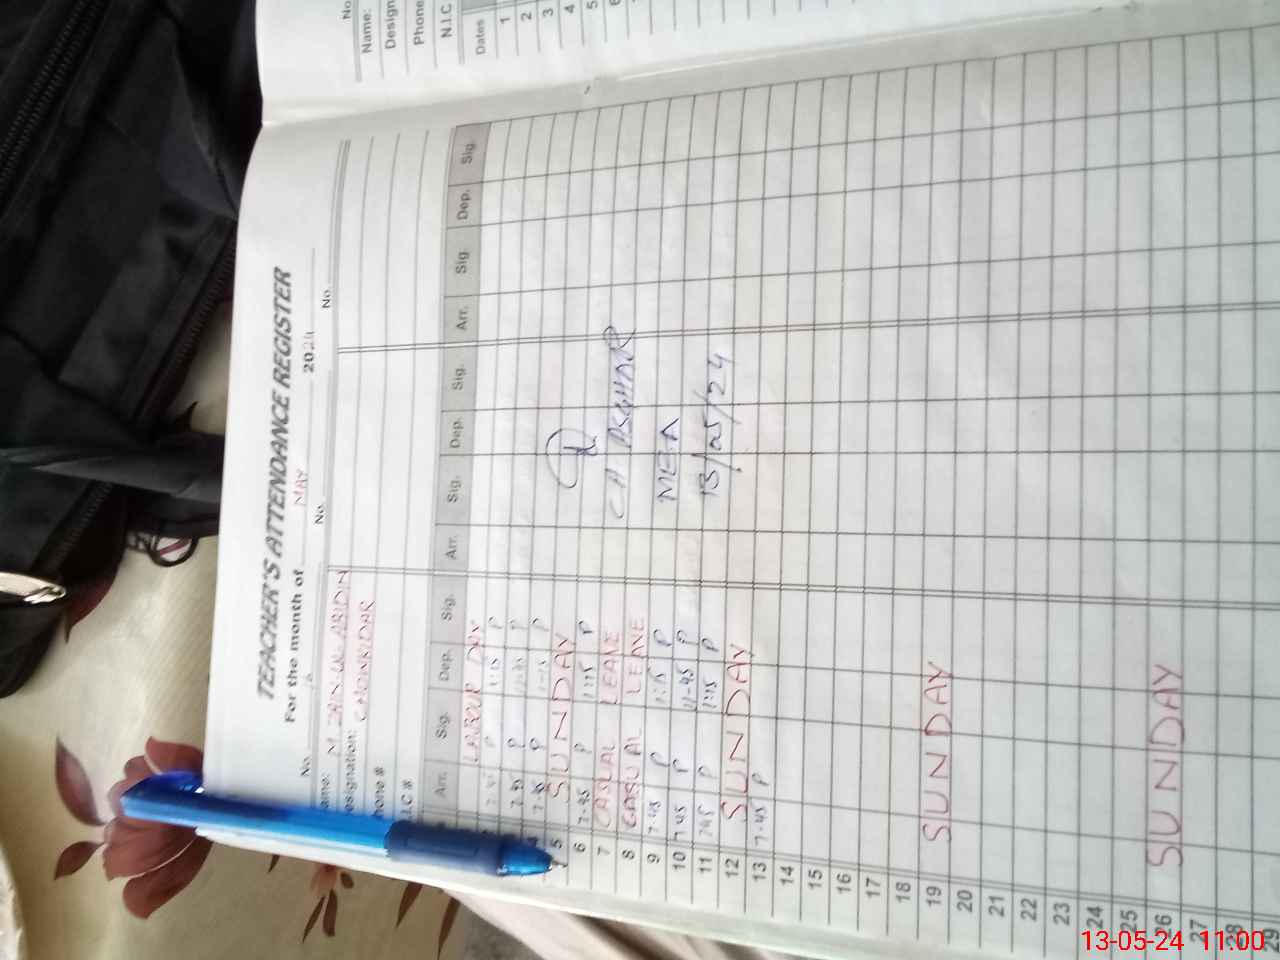 TEACHER'S ATTENDANCE REGISTER
For the month of MAY 2024
No. No. No.
Name: M ZAIN-UL-ABIDIN
Designation: CHOWKIDAR
Phone #
N.I.C #
Arr. Sig. Dep. Sig. Arr. Sig. Dep. Sig. Arr. Sig Dep. Sig.
LABOUR DAY
P 1:15 P
7-45 P P
4 7-45 P P
5 SUNDAY
6 7-45 P 1:15 P
7 CASUAL LEAVE
8 CASUAL LEAVE
9 7-45 P 1:15 P
10 7-45 P 11-45 P
11 7-45 P 1:15 P
12 SUNDAY
13 7-45 P
14
15
16
17
18
19 SUNDAY
20
21
22
23
24
25
26 SUNDAY
27
28
29
CH ASGHAR
MEA
13/05/24
No
Name:
Design
Phone
N.I.C
Dates
1
2
3
4
5
6
13-05-24 11:00